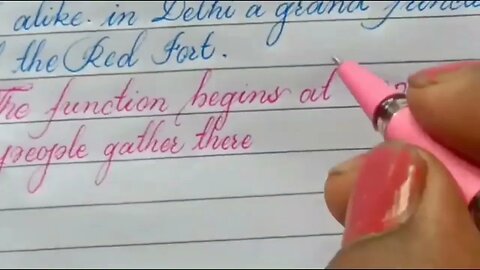 alike. in Delhi a grand
the Red Fort.
The function begins at
people gather there